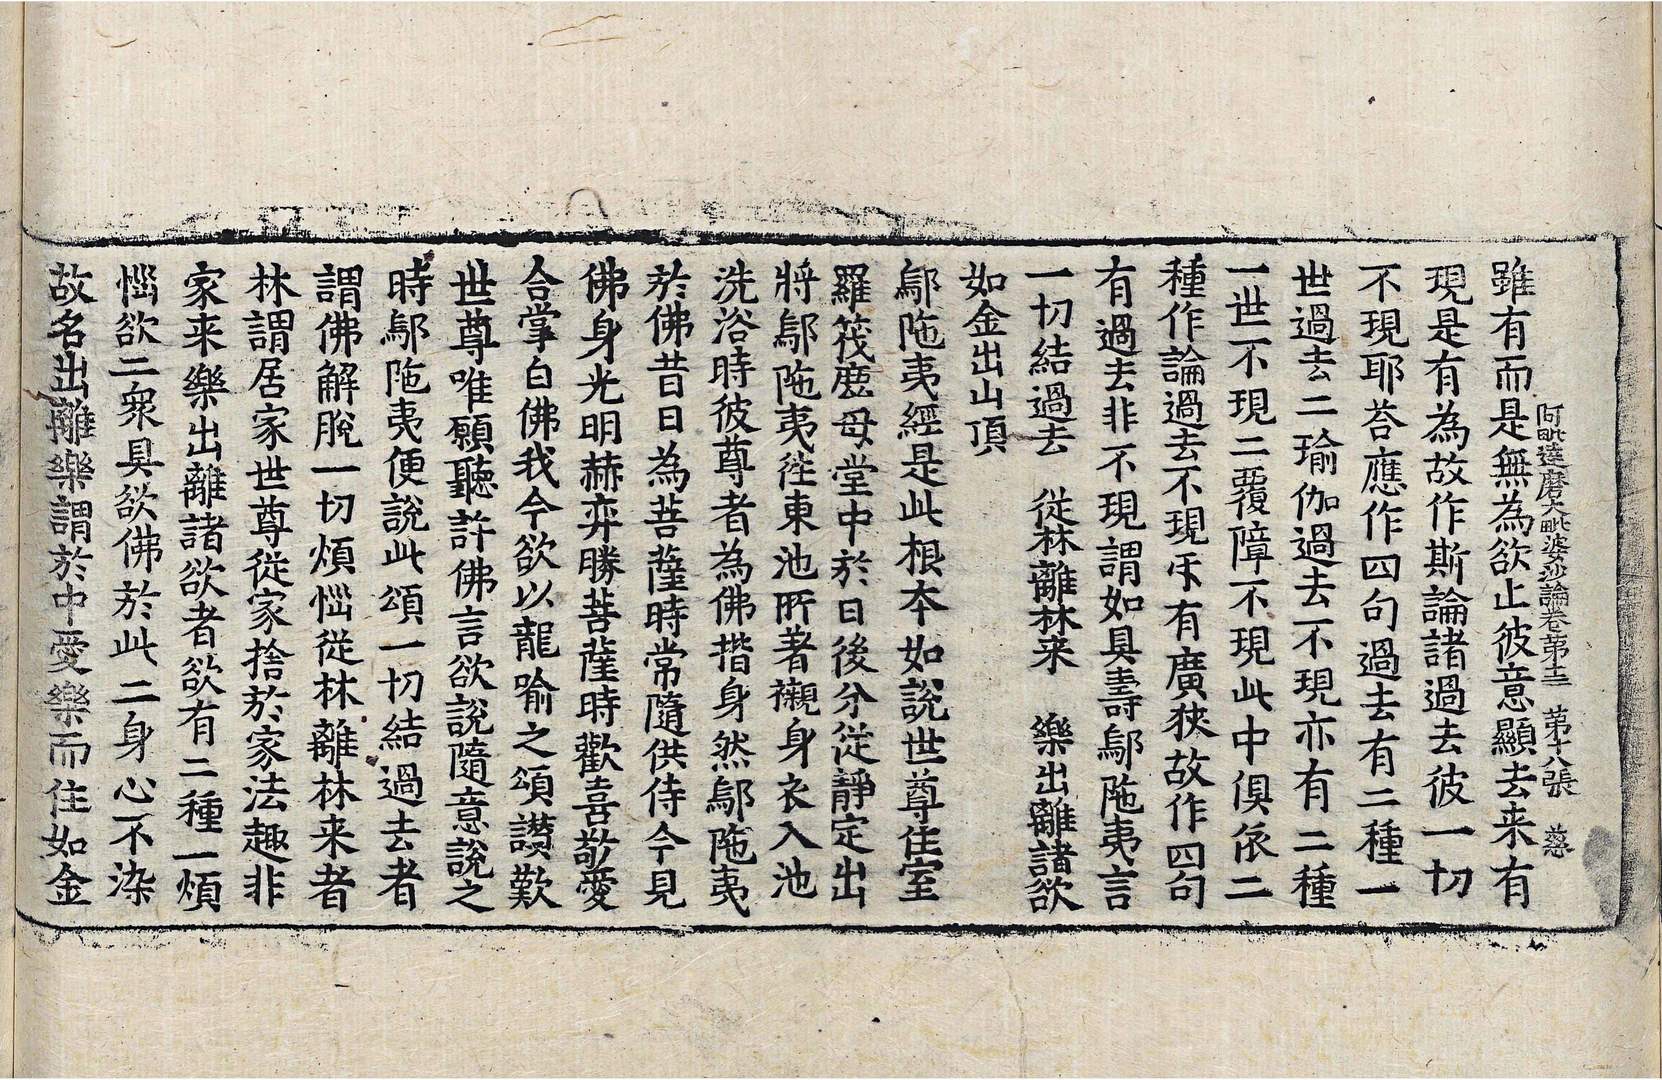 阿毗達磨大毗婆沙論卷第十三　第十八張　慈
雖有而是無為欲止彼意顯去来有
現是有為故作斯論諸過去彼一切
不現耶荅應作四句過去有二種一
世過去二瑜伽過去不現亦有二種
一世不現二覆障不現此中俱依二
種作論過去不現㡳有廣狹故作四句
有過去非不現謂如具壽鄔陁夷言
一切結過去　從林離林来　樂出離諸欲
如金出山頂
鄔陁夷經是此根本如說世尊住室
羅筏鹿母堂中於日後分従靜定出
將鄔陁夷徃東池所著襯身衣入池
洗浴時彼尊者為佛揩身然鄔陁夷
於佛昔日為菩薩時常隨供侍今見
佛身光明赫弈勝菩薩時歡喜敬愛
合掌白佛我今欲以龍喻之頌讚歎
世尊唯願聽許佛言欲說隨意說之
時鄔陁夷便說此頌一切結過去者
謂佛解脫一切煩惱従林離林来者
林謂居家世尊従家捨於家法趣非
家来樂出離諸欲者欲有二種一煩
惱欲二衆具欲佛於此二身心不染
故名出離樂謂於中愛樂而住如金